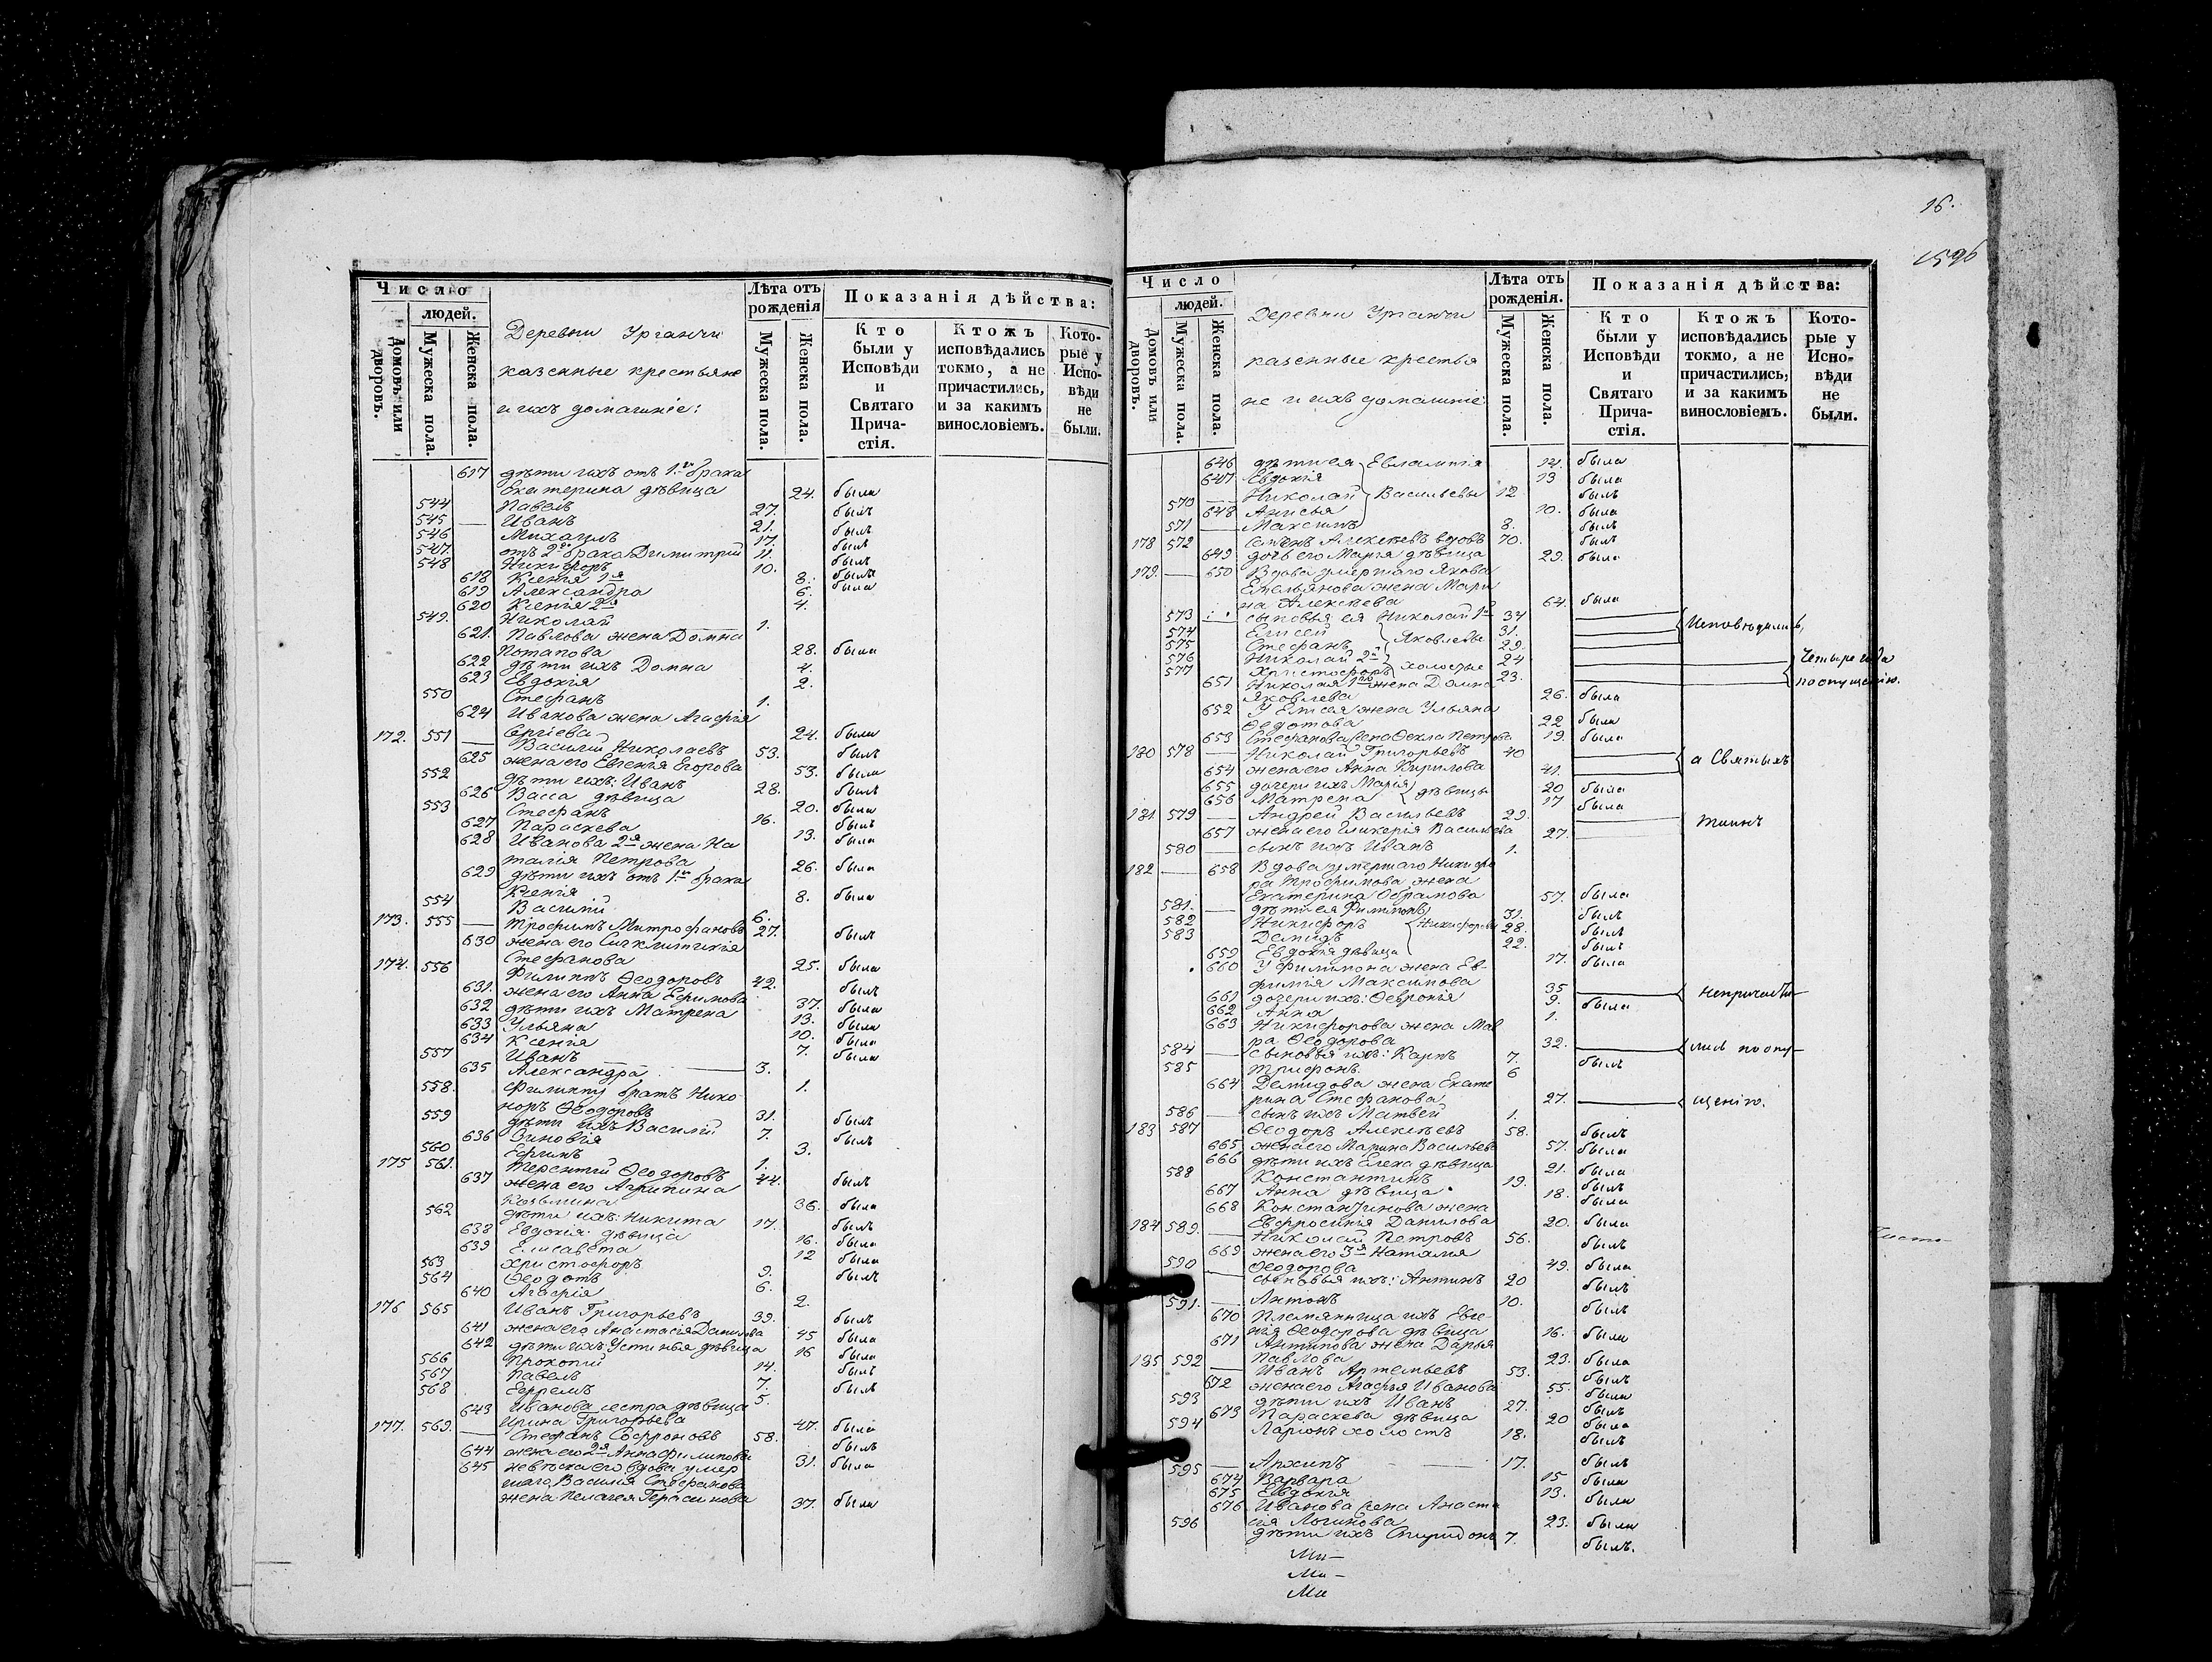 Число
людей.
Домовъ или дворовъ.
Мужеска пола.
Женска пола.
Деревни Урганчи
казенные крестьяне
и ихъ домашніе:
Лѣта отъ рожденія
Мужеска пола.
Женска пола.
Показанія дѣйства:
Кто были у Исповѣди и Святаго Прича-стія.
Ктожъ исповѣдались токмо, а не причастились, и за какимъ винословіемъ.
Кото-рые у Испо-вѣди не были.
617 дѣти ихъ отъ 1го брака
Екатерина дѣвица 24. была
544 Павелъ 27. былъ
545 — Иванъ 21. былъ
546 Михаилъ 17. былъ
547 отъ 2го брака Димитрій 11. былъ
548 Никифоръ 10. былъ
618 Ксенія 1я 8. была
619 Александра 6.
620 Ксенія 2я 4.
549. Николай 1.
621. Павлова жена Домна
Потапова 28. была
622 дѣти ихъ Домна 4.
623 Евдокія 2.
550 Стефанъ 1.
624 Иванова жена Агафія
Сергіева 24. была
172. 551 — Василій Николаевъ 53. былъ
625 жена его Евгенія Егорова 53. была
552 дѣти ихъ: Иванъ 28. былъ
626 Васса дѣвица 20. была
553 Стефанъ 16. былъ
627 Параскева 13. была
628 Иванова 2я жена На
талія Петрова 26. была
629 дѣти ихъ отъ 1го брака
Ксенія 8. была
554 Василій 6.
173. 555 — Трофимъ Митрофановъ 27. былъ
630 жена его Синклитикія
Стефанова 25. была
174. 556 Филиппъ Ѳеодоровъ 42. былъ
631. жена его Анна Ефимова 37. была
632 дѣти ихъ Матрена 13. была
633 Ульяна 10. была
634 Ксенія 7. была
557 Иванъ 3.
635 Александра 1.
558. Филиппу братъ Нико
норъ Ѳеодоровъ 31. былъ
559 дѣти ихъ Василій 7. былъ
636 Зиновія 3.
560 Ефимъ 1.
175 561. Терентій Ѳеодоровъ 44. былъ
637 жена его Агрипина
Козьмина 36. была
562 дѣти ихъ: Никита 17. былъ
638 Евдокія дѣвица 16. была
639 Елисавета 12 была
563 Христофоръ 9. былъ
564 Ѳеодотъ 6.
640 Агафія 2.
176 565 Иванъ Григорьевъ 39. былъ
641 жена его Анастасія Данилова 45 была
642 дѣти ихъ Устинья дѣвица 16 была
566 Прокопій 14. былъ
567 Павелъ 7. былъ
568 Ефремъ 5.
643 Иванова сестра дѣвица
Ирина Григорьева 47. была
177. 569. — Стефанъ Софроновъ 58. былъ
644 жена его 2я Анна Филипова 31. была
645 невѣстка его вдова умер
шаго Василія Стефанова
жена Пелагея Герасимова 37. была
16.
1596
Число
людей.
Домовъ или дворовъ.
Мужеска пола.
Женска пола.
Деревни Урганчи
казенные крестья
не и ихъ домашніе
Лѣта отъ рожденія.
Мужеска пола.
Женска пола.
Показанія дѣйства:
Кто были у Исповѣди и Святаго Прича-стія.
Ктожъ исповѣдались токмо, а не причастились, и за какимъ винословіемъ.
Кото-рые у Испо-вѣди не были.
646 дѣти ея Евлампія 14. была
647 Евдокія 13 была
570 — Николай Васильевы 12 былъ
648 Анисья 10. была
571 — Максимъ 8. былъ
178 572 Семенъ Алексѣевъ вдовъ 70. былъ
649 дочь его Марія дѣвица 29. была
179. — 650 Вдова умершаго Якова
Емельянова жена Мари
на Алексѣева 64. была
573 сыновья ея Николай 1й 34
574 Елисей 31. Исповѣдались
575 Стефанъ Яковлевы 29.
576 Николай 2й 24 Четыре года
577 Христофоръ холостые 23. по опущенію.
651 Николая 1го жена Домна
Яковлева 26. была
652 У Елисея жена Ульяна
Ѳедотова 22 была
653 Стефанова жена Ѳекла Петрова 19. была
180 578 — Николай Григорьевъ 40
654 жена его Анна Кирилова 41. а Святыхъ
655 дочери ихъ Марія 20 была
656 Матрена дѣвицы 17 была
181 579 — Андрей Васильевъ 29. Таинъ
657 жена его Гликерія Васильева 27.
580 — сынъ ихъ Иванъ 1.
182 — 658 Вдова умершаго Никифо
ра Трофимова жена
Екатерина Обрамова 57. была
581. — дѣти ея Филимонъ 31. былъ
582 Никифоръ Никифоровы 28. былъ
583 Демидъ 22. былъ
659 Евдокія дѣвица 17. была
660 У Филимона жена Ев-
фимія Максимова 35 непричасти—
661 дочери ихъ: Ѳевронія 9. была
662 Анна 1.
663 Никифорова жена Мав
ра Ѳеодорова 32. лись по опу—
584 — сыновья ихъ: Карпъ 7. былъ
585 Трифонъ 6
664 Демидова жена Екате
рина Стефанова 27. щенію.
586 — сынъ ихъ Матвей 1.
183 587 Ѳеодоръ Алексѣевъ 58. былъ
665 жена его Марина Васильева 57. была
666 дѣти ихъ Елена дѣвица 21. была
588 Константинъ 19. былъ
667 Анна дѣвица 18. была
668 Константинова жена
Евфросинія Данилова 20. была
184 589. — Николай Петровъ 56. былъ
669 жена его 3я Наталія
Ѳеодорова 49. была
590 — сыновья ихъ: Антипъ 20 былъ
591. — Антонъ 10. былъ
670 Племянница ихъ Евге-
нія Ѳеодорова дѣвица 16. была
671 Антипова жена Дарья
Павлова 23. была
185 592 — Иванъ Артемьевъ 53. былъ
672 жена его Агафья Иванова 55. была
593 дѣти ихъ Иванъ 27. былъ
673 Параскева дѣвица 20 была
594 Ларіонъ холостъ 18. былъ
595 — Архипъ — 17. былъ
674 Варвара 15 была
675 Евдокія 13. была
676 Иванова жена Анаста
сія Логинова 23. была
596 дѣти ихъ Спиридонъ 7. былъ.
Ми—
Ми—
Ми